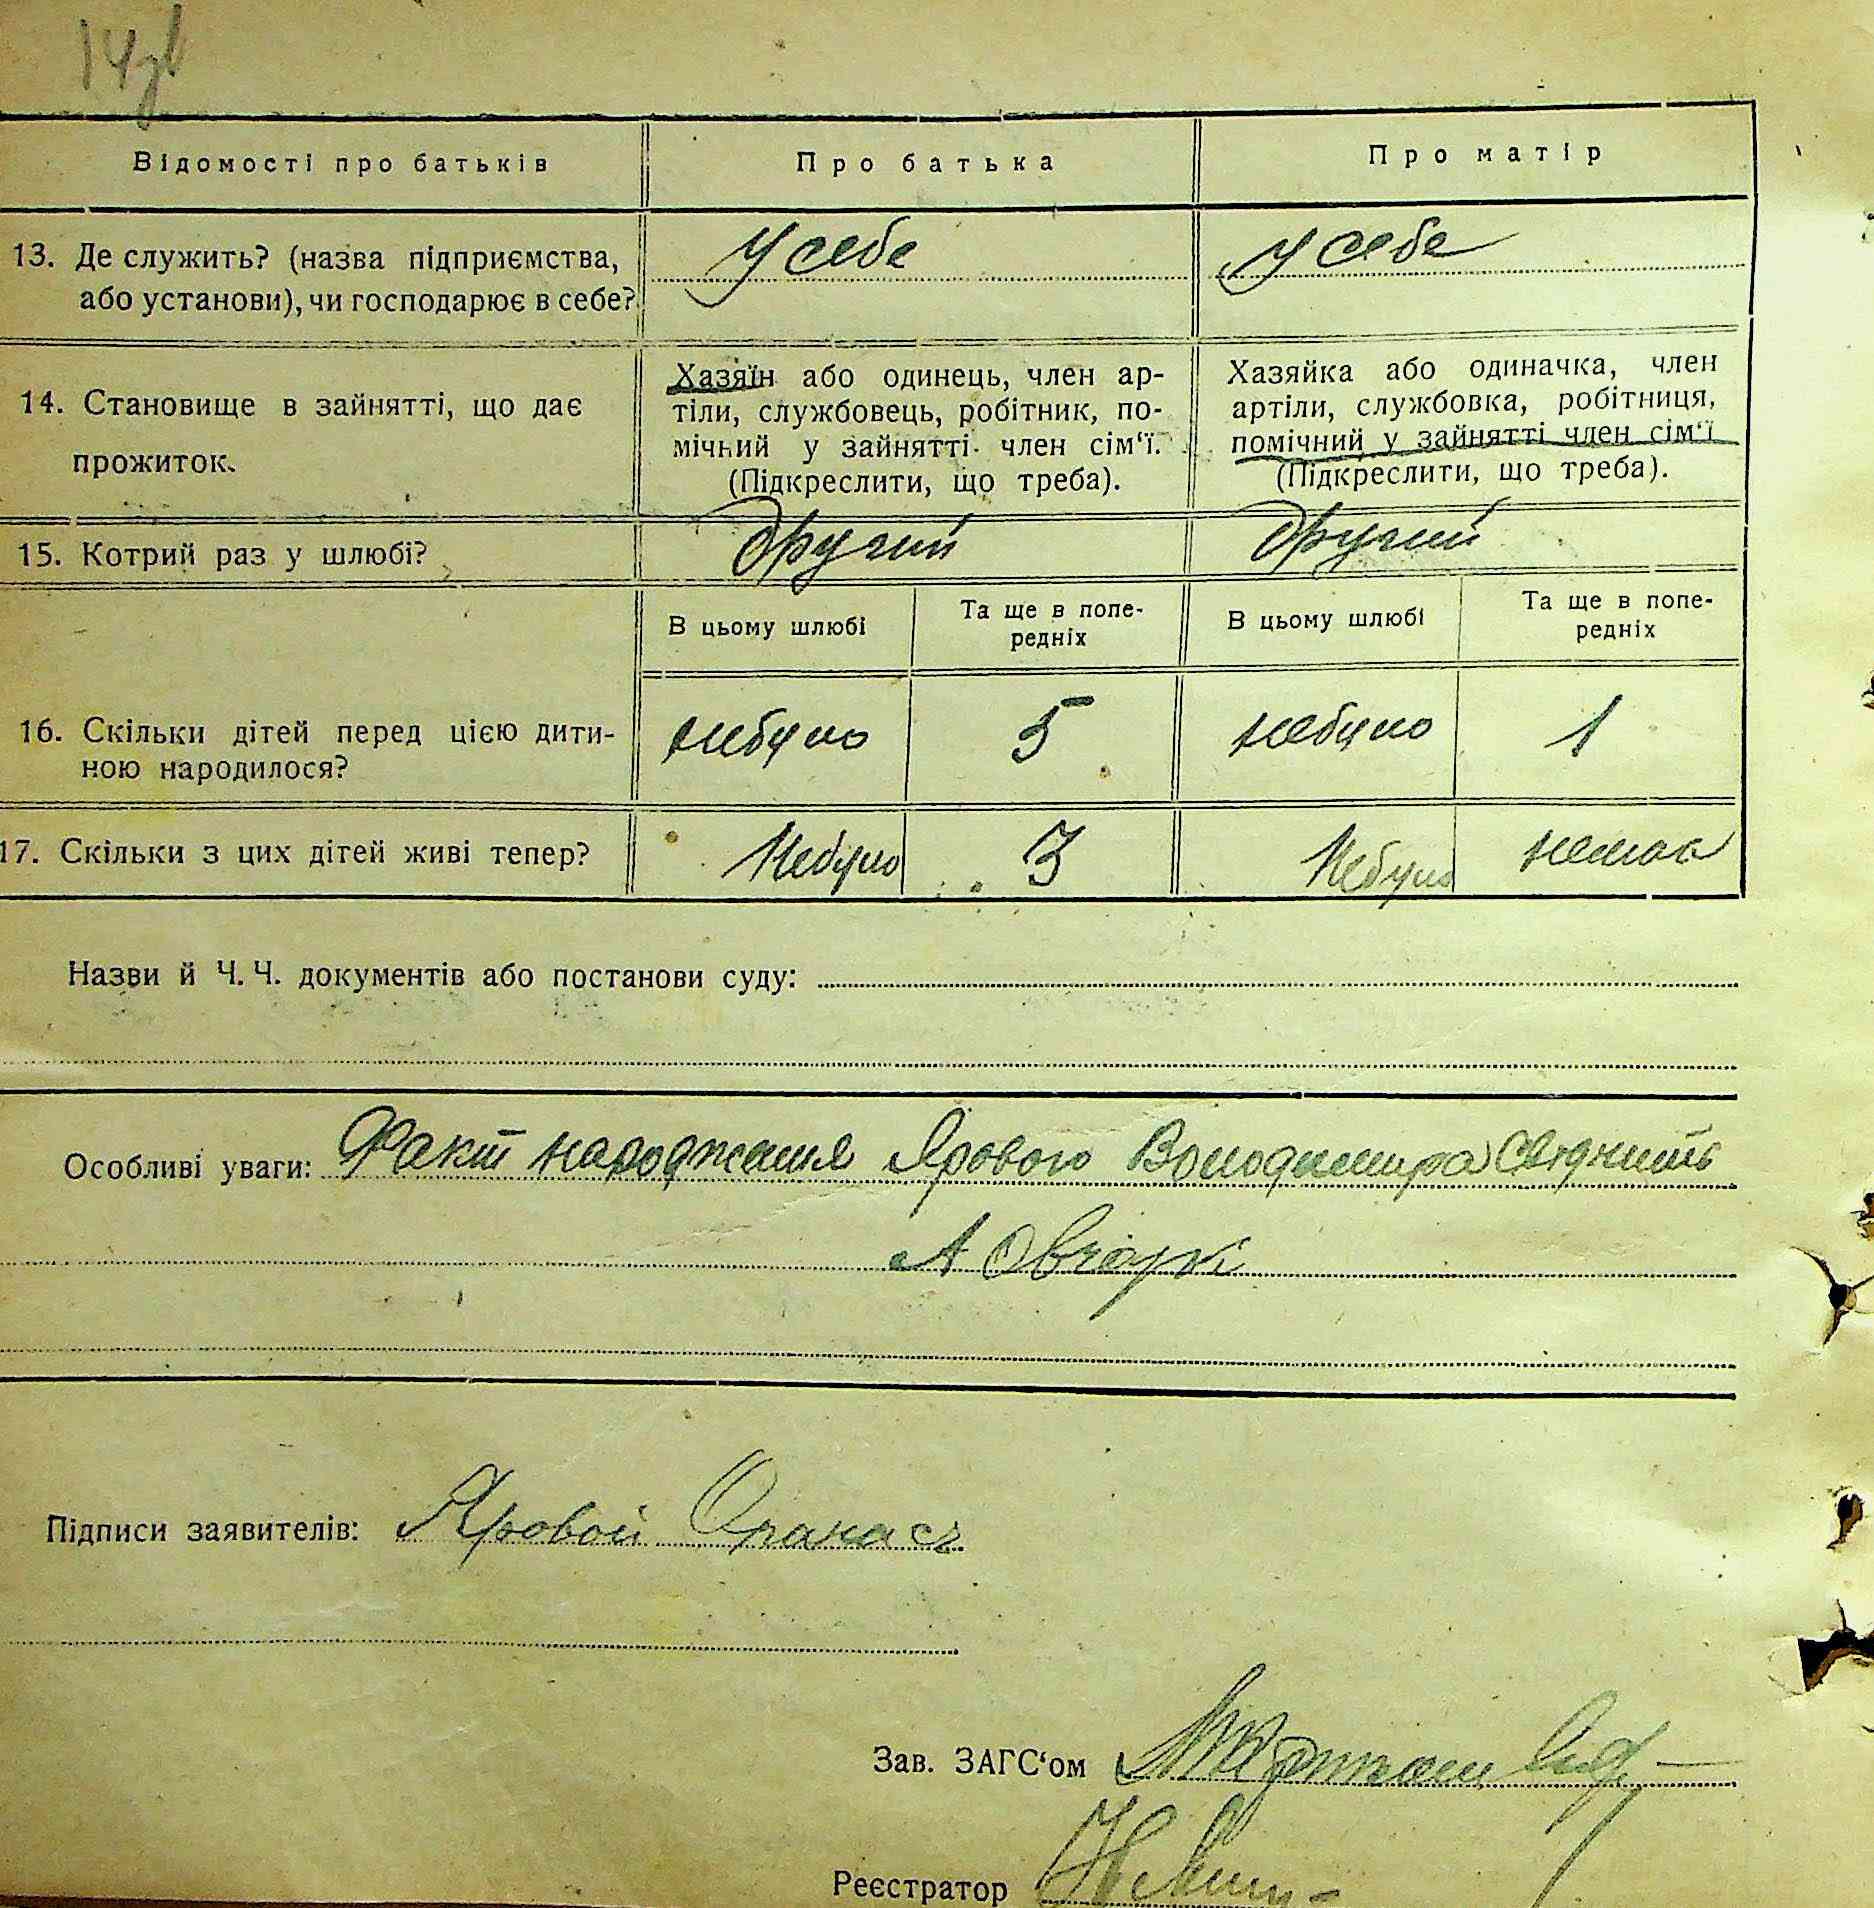 14зв
Відомості про батьків
Про батька
Про матір
13. Де служить? (назва підприємства,
або установи), чи господарює в себе?
У себе
У себе
14. Становище в зайнятті, що дає
прожиток.
Хазяїн або одинець, член ар-
тіли, службовець, робітник, по-
мічний у зайнятті член сім‘ї.
(Підкреслити, що треба).
Хазяйка або одиначка, член
артіли, службовка, робітниця,
помічний у зайнятті член сім‘ї
(Підкреслити, що треба).
15. Котрий раз у шлюбі?
другий
другий
В цьому шлюбі
Та ще в попе-
редніх
В цьому шлюбі
Та ще в попе-
редніх
16. Скільки дітей перед цією дити-
ною народилося?
небуло
5
небуло
1
17. Скільки з цих дітей живі тепер?
Небуло
3
Небуло
немає
Назви й Ч. Ч. документів або постанови суду:
Особливі уваги: Факт народження Ярового Володимира свідчить
А Овчарк
Підписи заявителів: Яровой Опанас
Зав. ЗАГС‘ом
Реєстратор